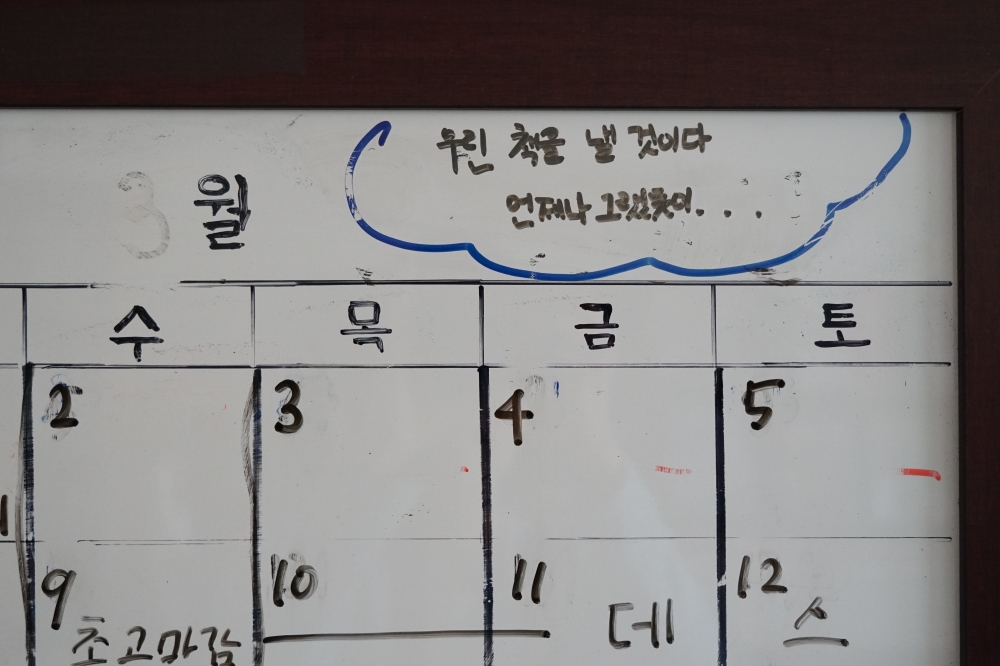 우린 책을 낼 것이다
언제나 그랬듯이. . .
3월
수 목 금 토
2 3 4 5
9 10 11 12
초고마감 데 스